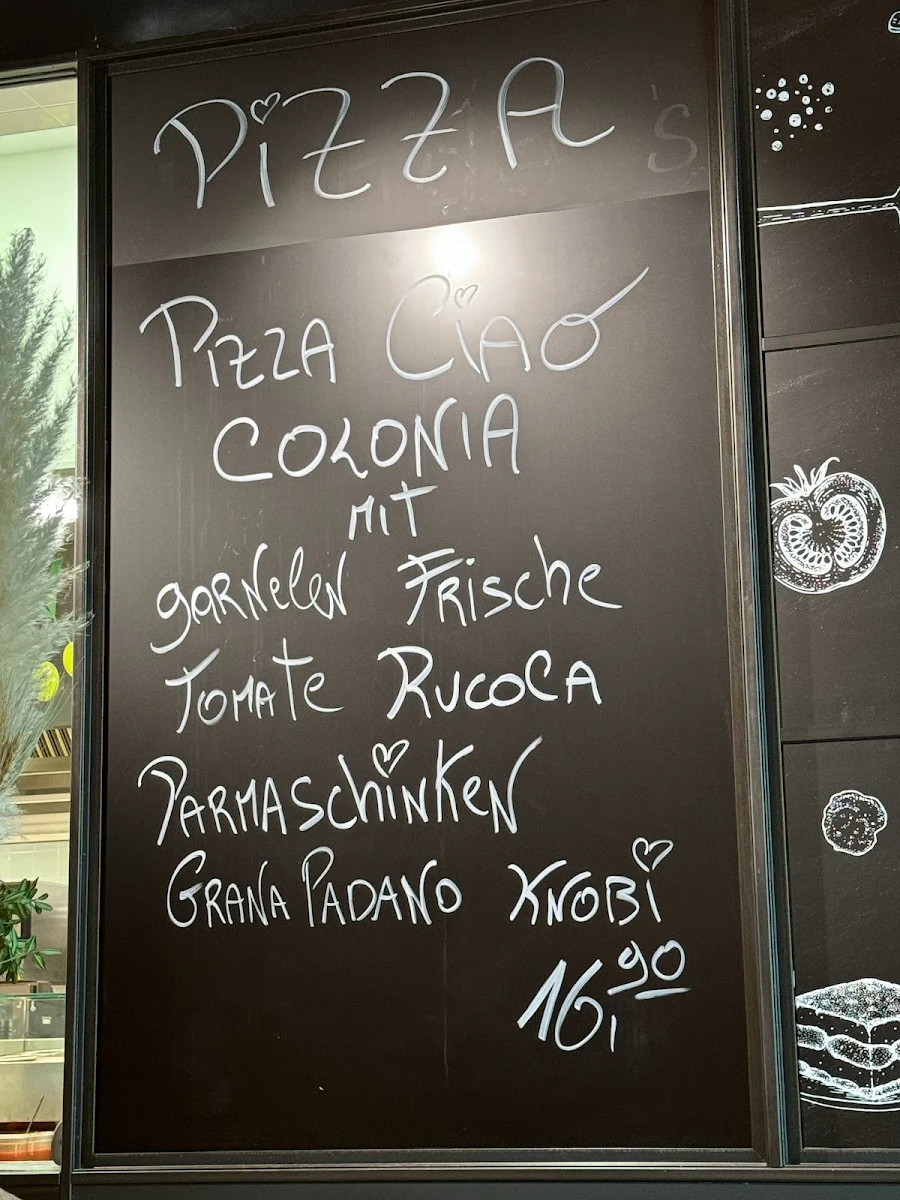 PiZZA 's
PiZZA CiAO
COLONIA
MIT
gARNeleN FRische
TOMATe RUCOLA
PARMASchiNKeN
GRANA PADANO KNOBi
16,90